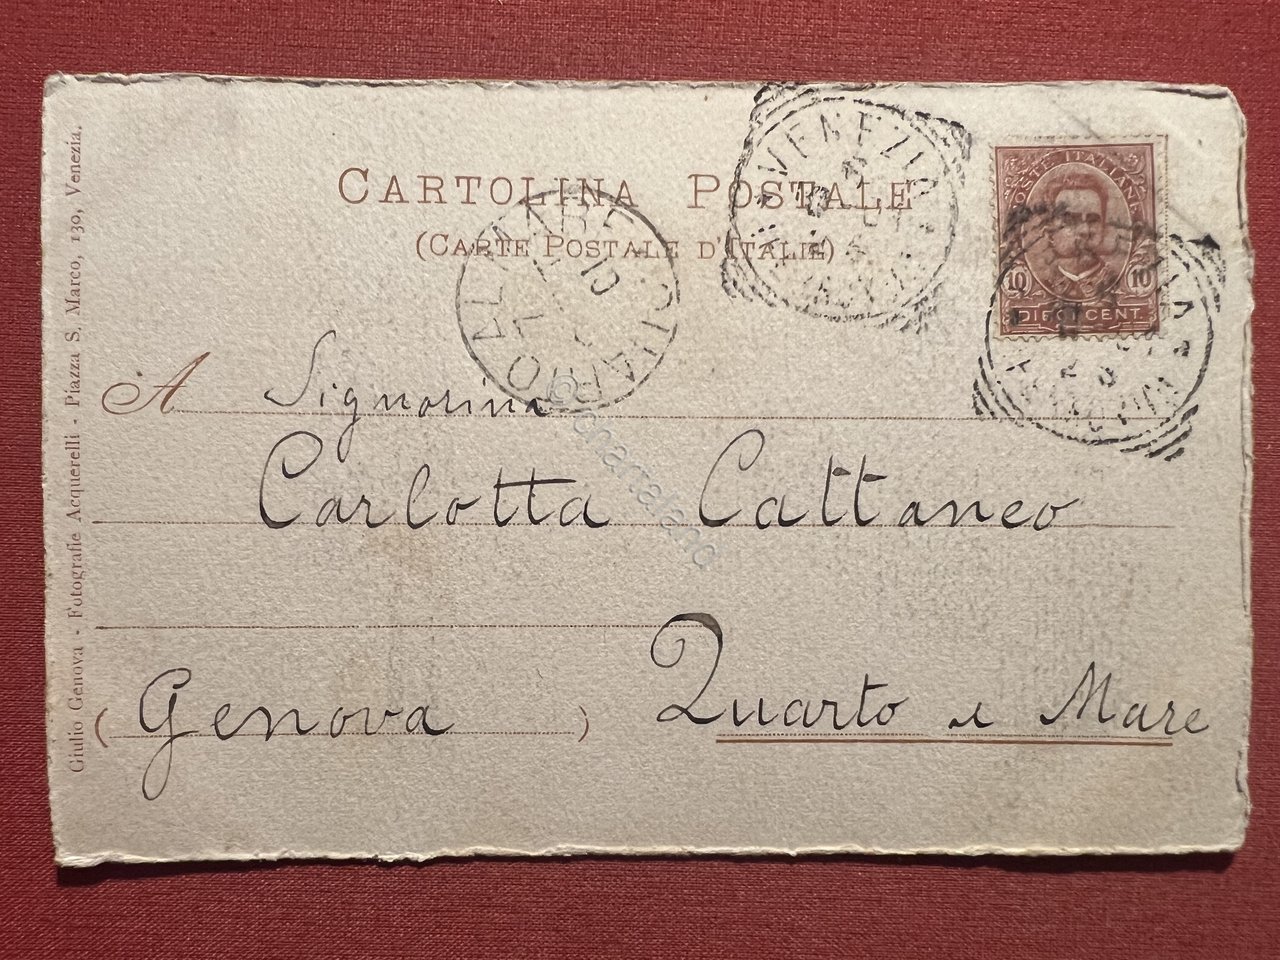 CARTOLINA POSTALE
(CARTE POSTALE D'ITALIE)
VENEZIA
POSTE ITALIANE
10 10
DIECI CENT.
QUARTO AL MARE
A Signorina
Carlotta Cattaneo
Quarto a Mare
(Genova)
Giulio Genova - Fotografie Acquerelli - Piazza S. Marco, 139, Venezia.